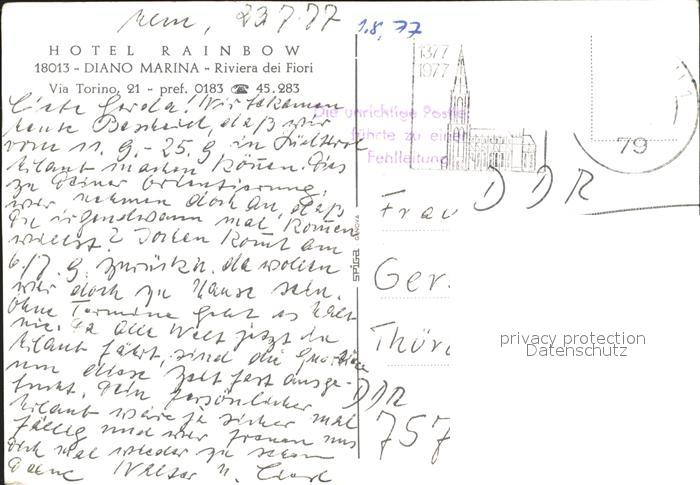 Ulm, 23.7.77
1.8.77
HOTEL RAINBOW
18013 - DIANO MARINA - Riviera dei Fiori
Via Torino, 21 - pref. 0183 ☎ 45.283
Liebe Gerda! Wir bekamen
heute Bescheid, daß wir
vom 11.9.-25.9. in Südtirol
Urlaub machen können. Dies
zu Deiner Orientierung,
wir nehmen doch an, daß
Du irgendwann mal kommen
willst? Jochen kommt am
6./7.9. zurück u. da wollen
wir doch zu Hause sein.
Ohne Termine geht es halt
nie. Da alle Welt jetzt in
Urlaub fährt, sind die Quartiere
um diese Zeit fast ausge-
bucht. Dein persönlicher
Urlaub wäre ja sicher mal
fällig und wir freuen uns
Dich mal wieder zu sehen
Deine Walter u.
1377
1977
79
Die unrichtige Postle
führte zu einer
Fehlleitung
DDR
SPIGA GENOVA
Frau
Ger
Thür
DDR
757
privacy protection
Datenschutz